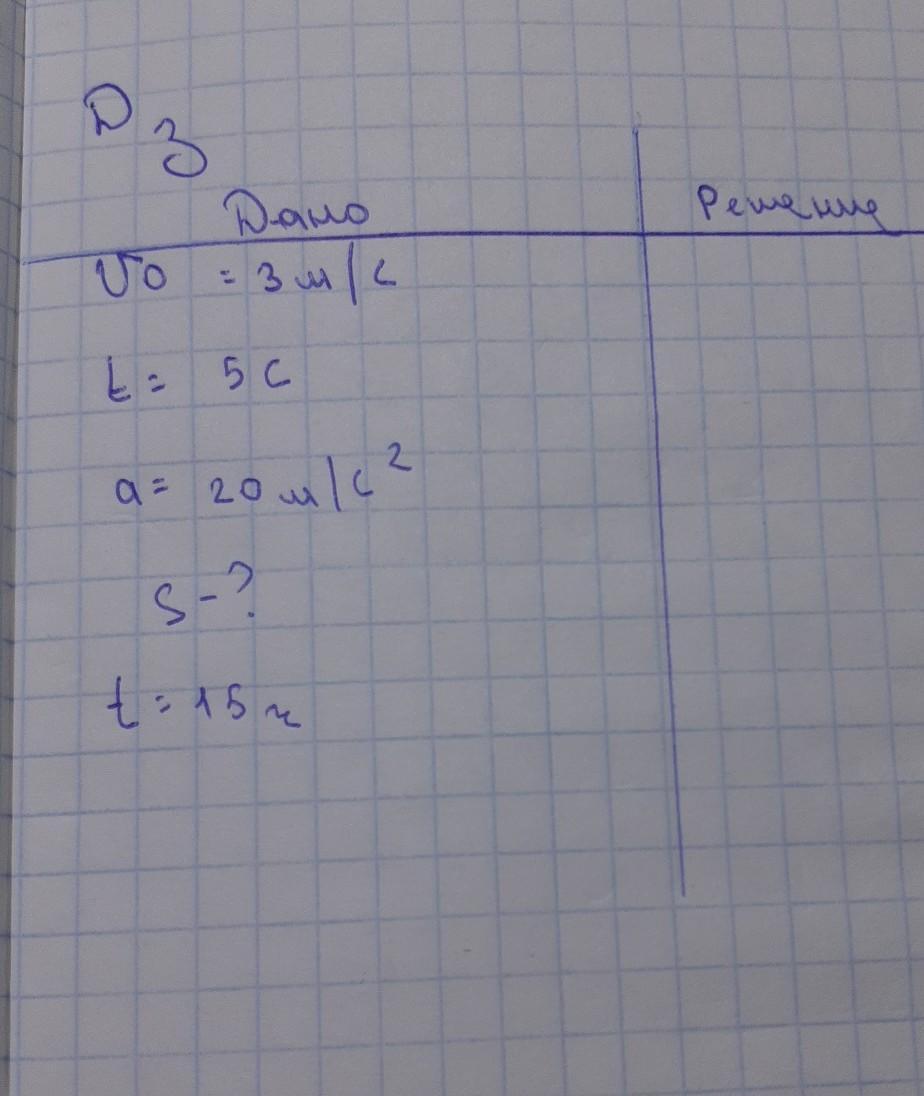 ДЗ
Дано Решение
υ0 = 3 м/с
t = 5 с
a = 20 м/с²
S - ?
t = 15 ч